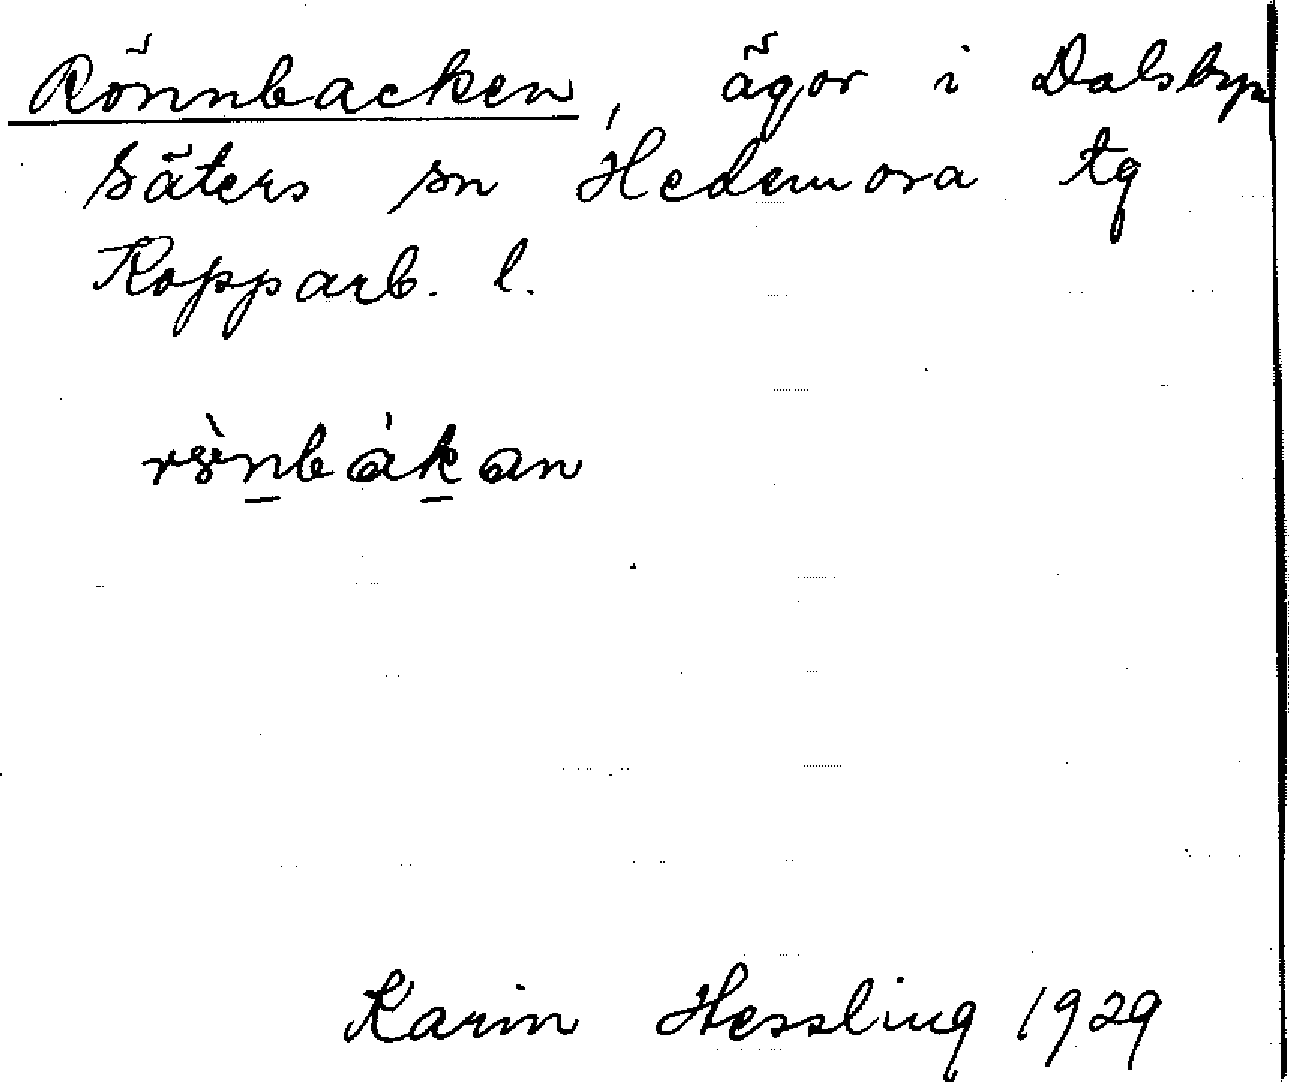 Rönnbacken, ägor i Dalsbyn
Säters sn Hedemora tg
Kopparb. l.
Karin Hessling 1929